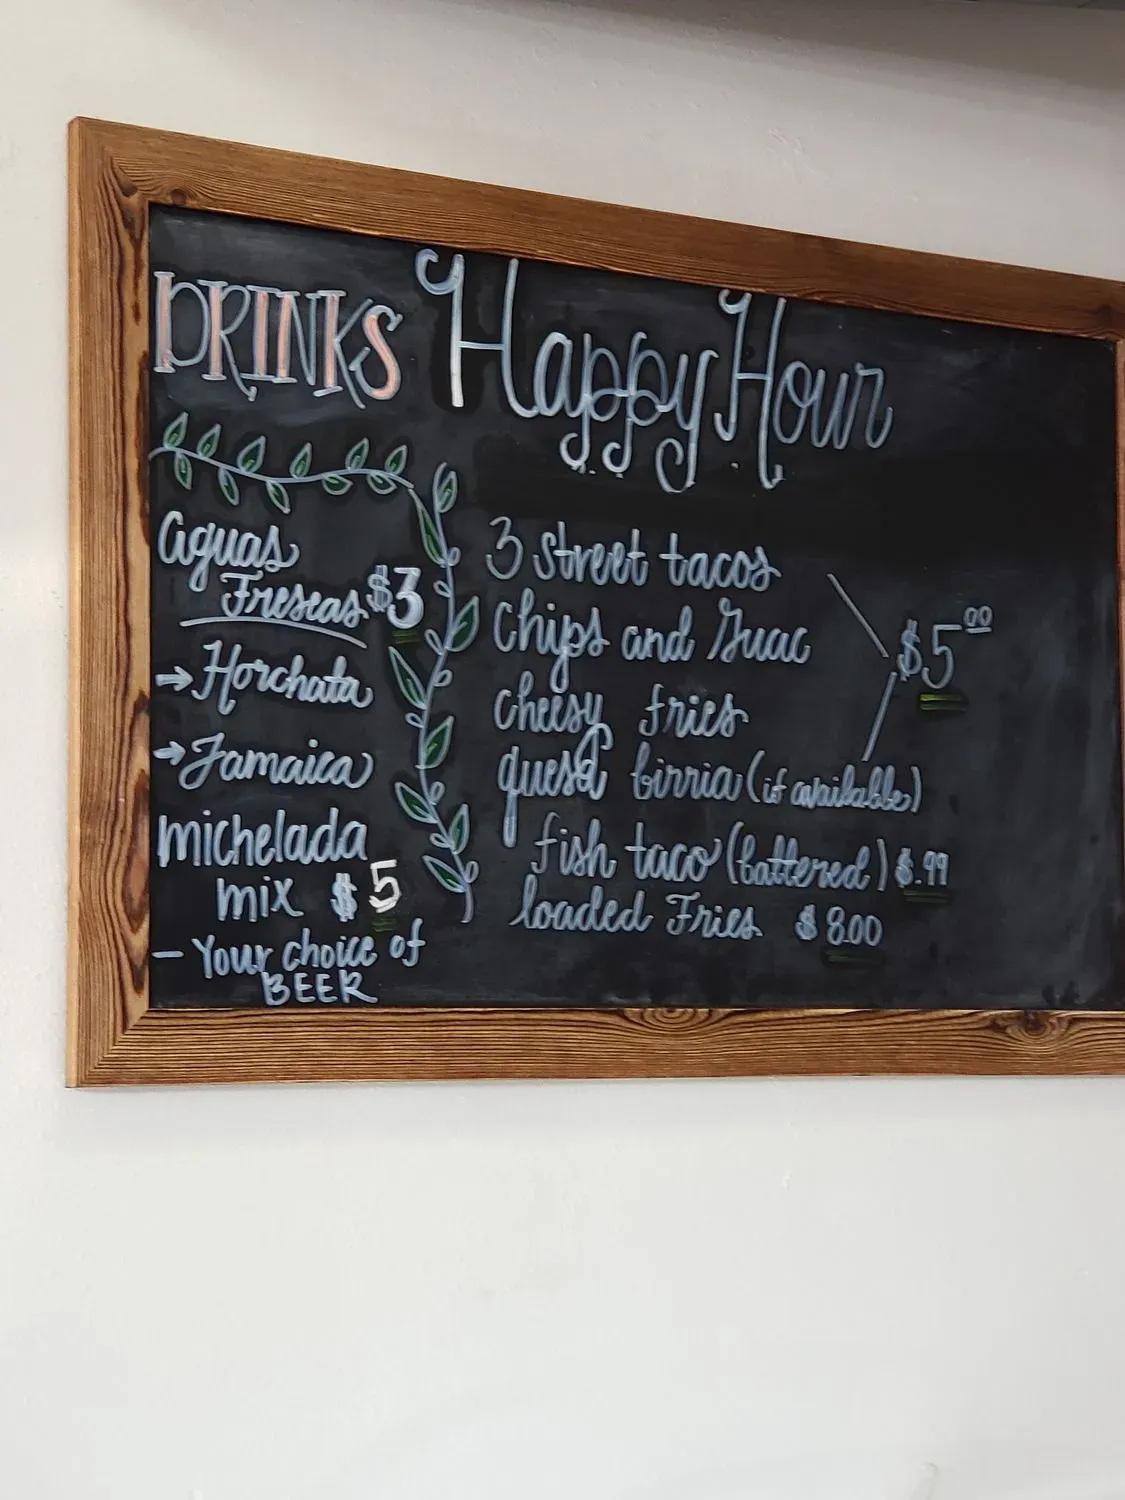 DRINKS
Aguas
Frescas $3
→ Horchata
→ Jamaica
michelada
mix $5
- Your choice of
BEER
Happy Hour
3 street tacos
Chips and Guac
cheesy fries
$5.00
quesa birria (if available)
fish taco (battered) $.99
loaded Fries $8.00